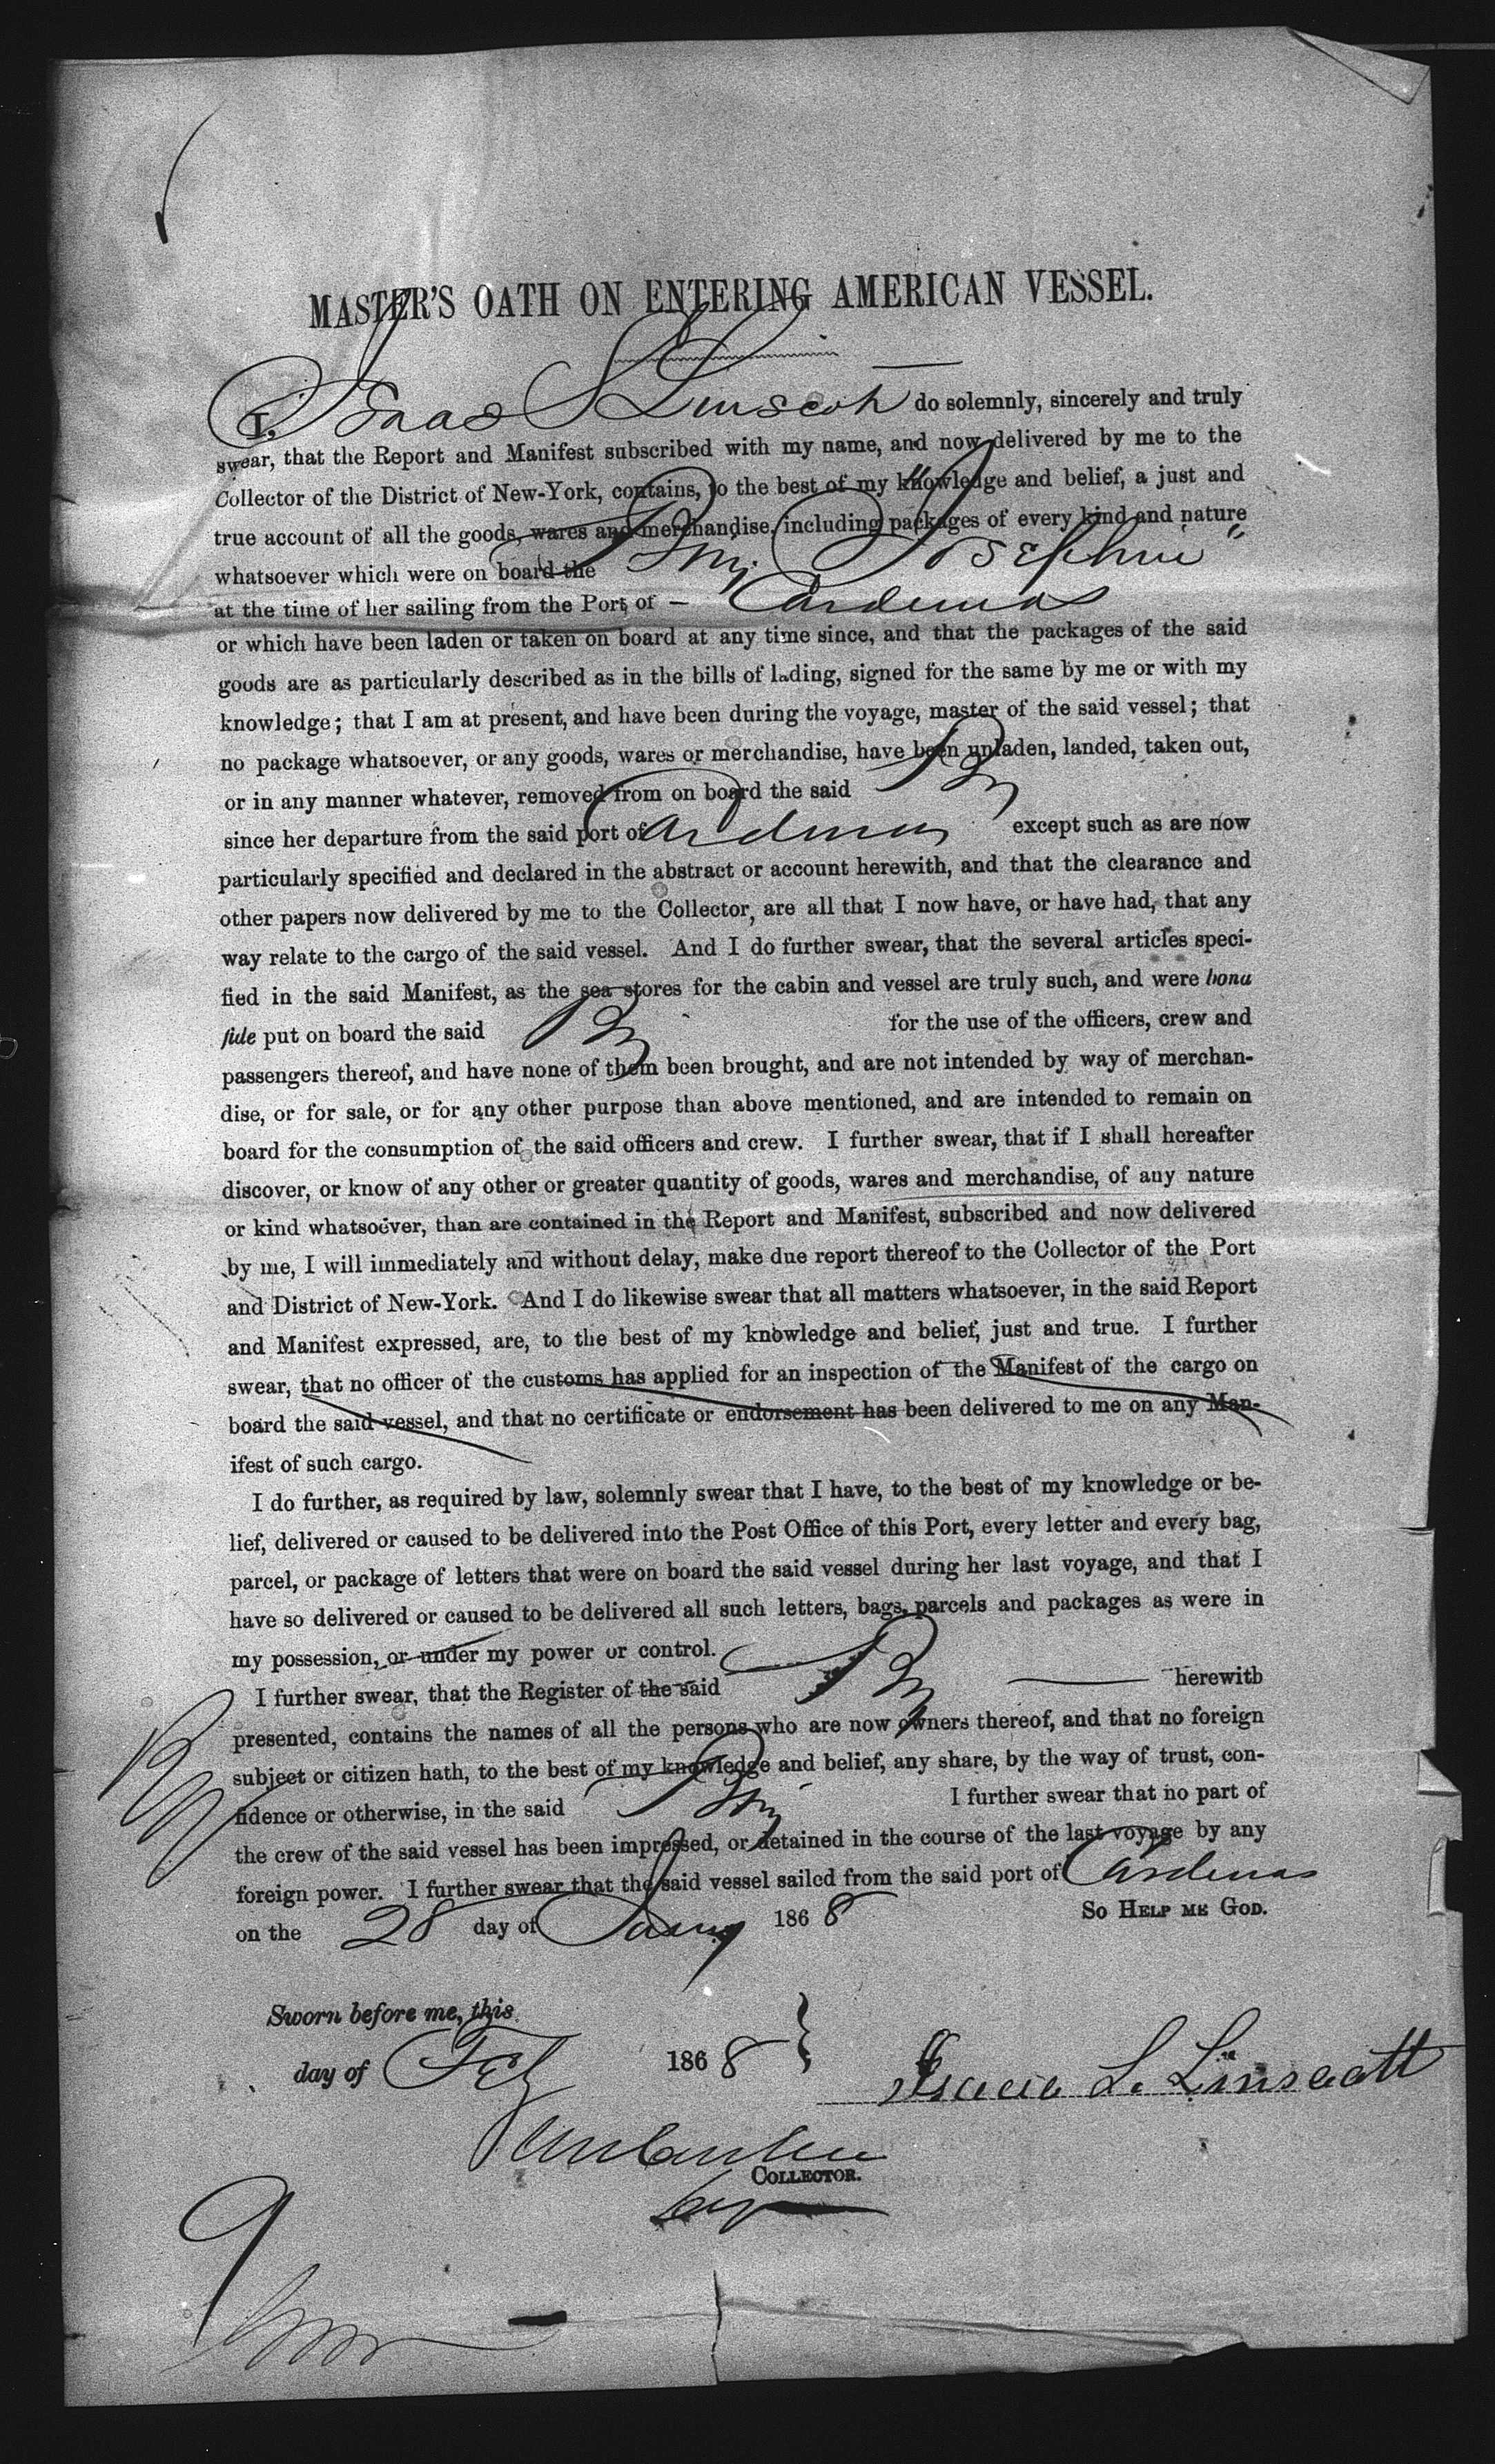 MASTER'S OATH ON ENTERING AMERICAN VESSEL.
I, Isaac L Linscott do solemnly, sincerely and truly
swear, that the Report and Manifest subscribed with my name, and now delivered by me to the
Collector of the District of New-York, contains, to the best of my knowledge and belief, a just and
true account of all the goods, wares and merchandise, including packages of every kind and nature
whatsoever which were on board the Brig "Josephine"
at the time of her sailing from the Port of — Cardenas
or which have been laden or taken on board at any time since, and that the packages of the said
goods are as particularly described as in the bills of lading, signed for the same by me or with my
knowledge; that I am at present, and have been during the voyage, master of the said vessel; that
no package whatsoever, or any goods, wares or merchandise, have been unladen, landed, taken out,
or in any manner whatever, removed from on board the said Brig
since her departure from the said port of Cardenas except such as are now
particularly specified and declared in the abstract or account herewith, and that the clearance and
other papers now delivered by me to the Collector, are all that I now have, or have had, that any
way relate to the cargo of the said vessel. And I do further swear, that the several articles speci-
fied in the said Manifest, as the sea stores for the cabin and vessel are truly such, and were bona
fide put on board the said Brig for the use of the officers, crew and
passengers thereof, and have none of them been brought, and are not intended by way of merchan-
dise, or for sale, or for any other purpose than above mentioned, and are intended to remain on
board for the consumption of the said officers and crew. I further swear, that if I shall hereafter
discover, or know of any other or greater quantity of goods, wares and merchandise, of any nature
or kind whatsoever, than are contained in the Report and Manifest, subscribed and now delivered
by me, I will immediately and without delay, make due report thereof to the Collector of the Port
and District of New-York. And I do likewise swear that all matters whatsoever, in the said Report
and Manifest expressed, are, to the best of my knowledge and belief, just and true. I further
swear, that no officer of the customs has applied for an inspection of the Manifest of the cargo on
board the said vessel, and that no certificate or endorsement has been delivered to me on any Man-
ifest of such cargo.
I do further, as required by law, solemnly swear that I have, to the best of my knowledge or be-
lief, delivered or caused to be delivered into the Post Office of this Port, every letter and every bag,
parcel, or package of letters that were on board the said vessel during her last voyage, and that I
have so delivered or caused to be delivered all such letters, bags, parcels and packages as were in
my possession, or under my power or control.
I further swear, that the Register of the said Brig herewith
presented, contains the names of all the persons who are now owners thereof, and that no foreign
subject or citizen hath, to the best of my knowledge and belief, any share, by the way of trust, con-
fidence or otherwise, in the said Brig I further swear that no part of
the crew of the said vessel has been impressed, or detained in the course of the last voyage by any
foreign power. I further swear that the said vessel sailed from the said port of Cardenas
on the 28 day of Jany 1868 SO HELP ME GOD.
Sworn before me, this
day of Feb 1868 }
Isaac L. Linscott
COLLECTOR.
9